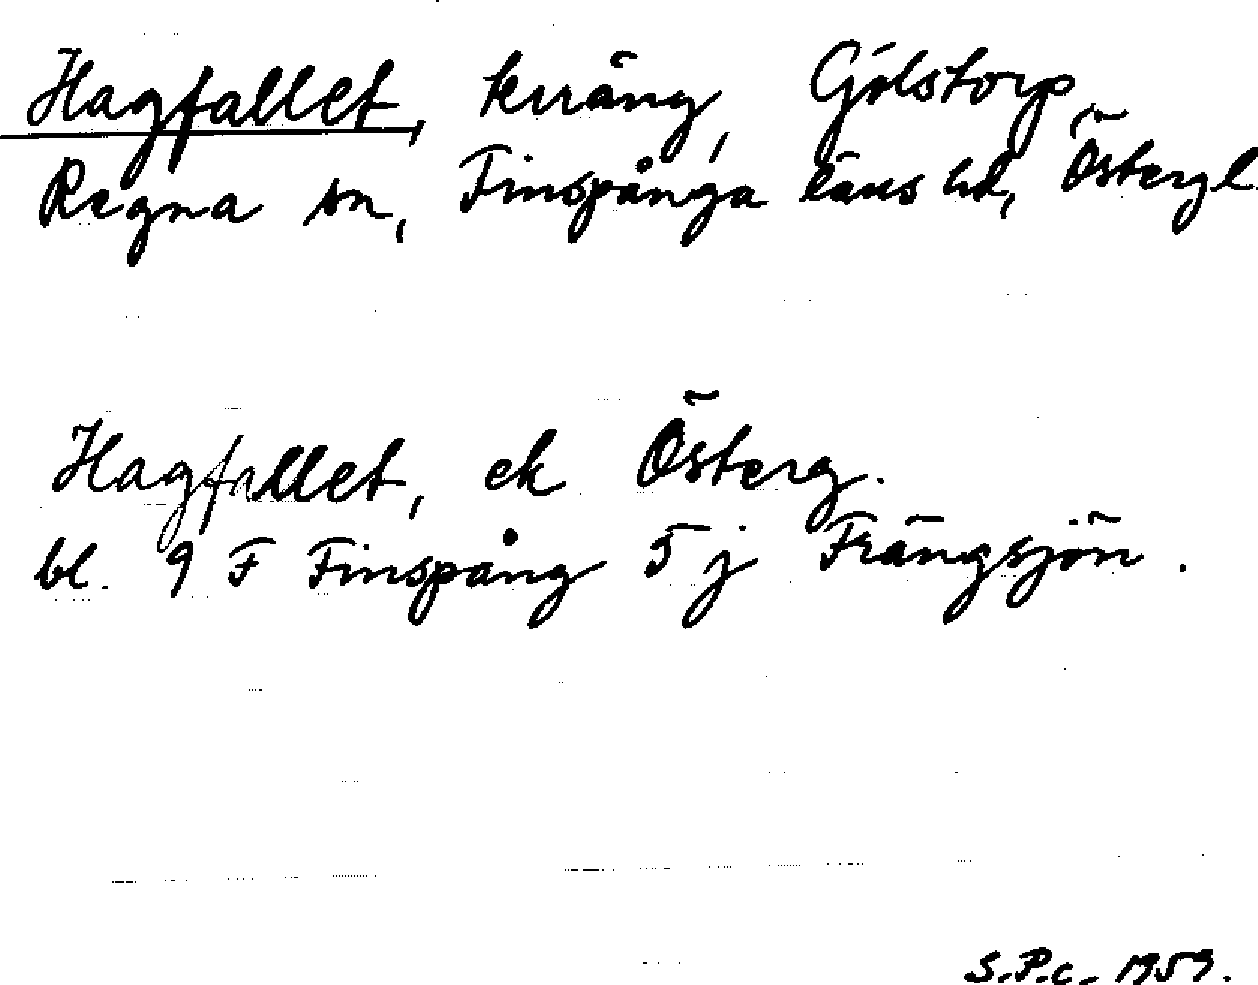 Hagfallet, kvräng, Gölstorp,
Regna sn, Finspånga läns hd, Östergl.
Hagfallet, ek Österg.
bl. 9 F Finspång 5 j Främgsjön.
S.P.c. 1959.